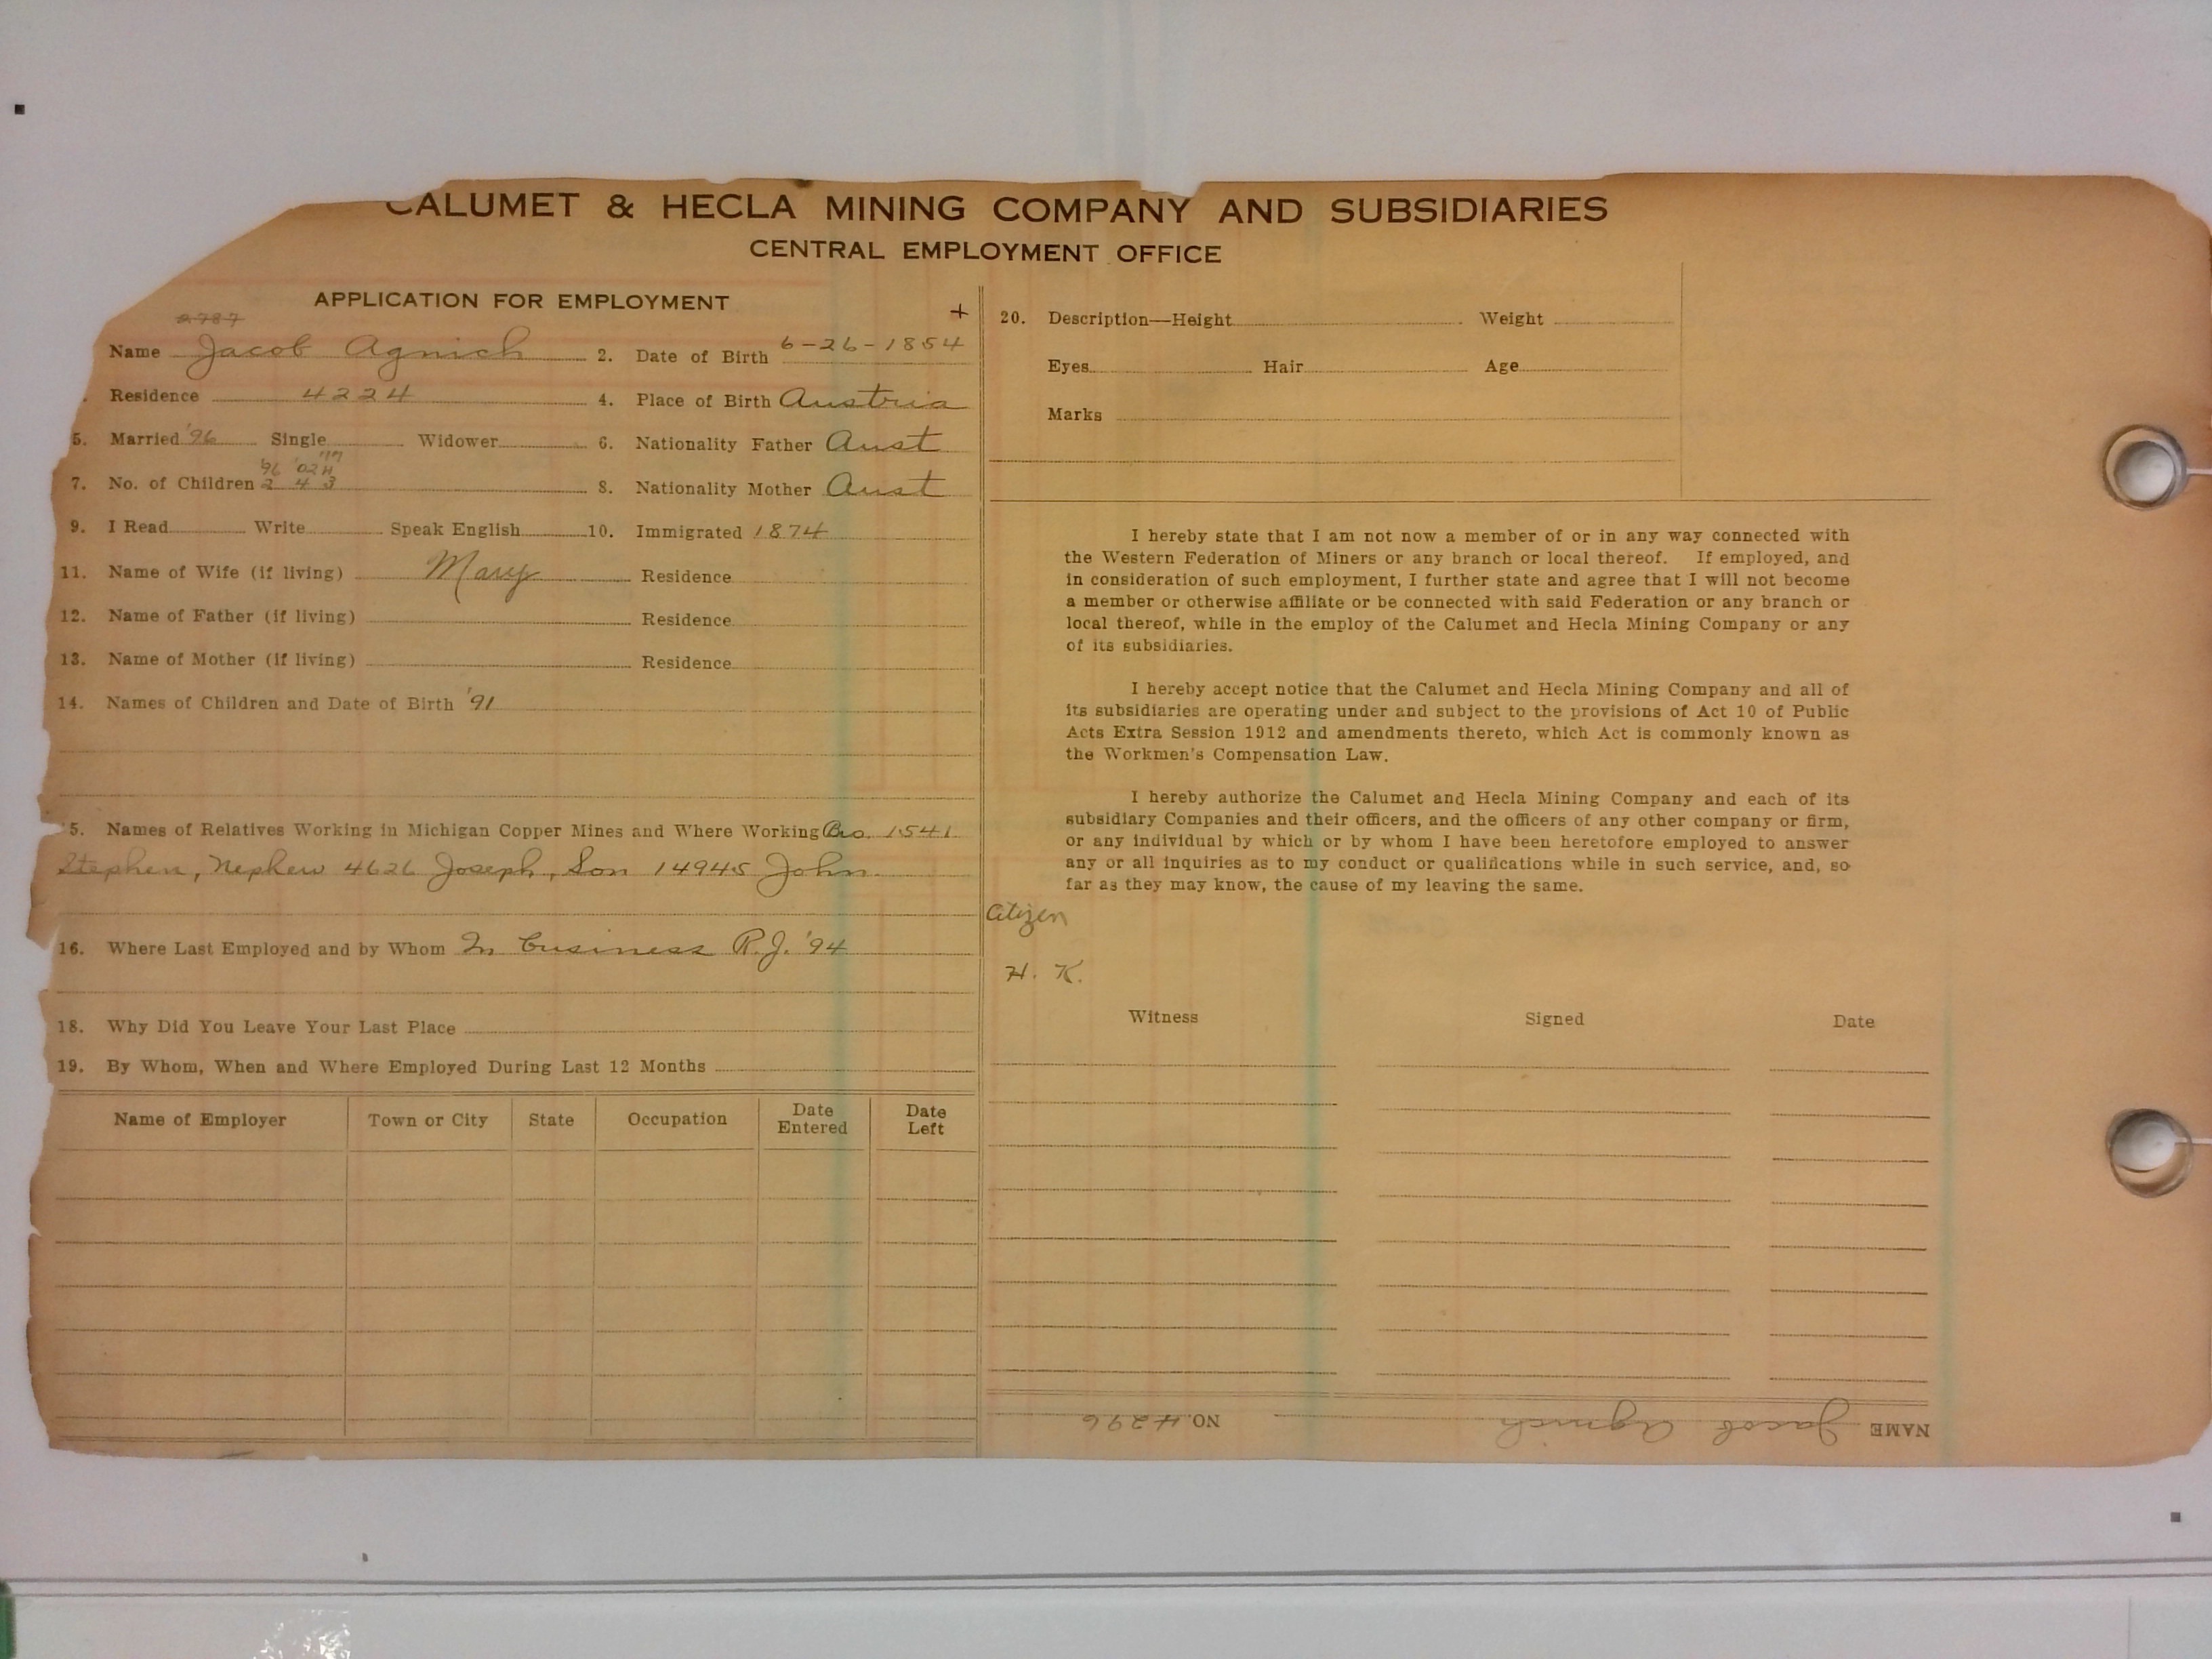 CALUMET & HECLA MINING COMPANY AND SUBSIDIARIES
CENTRAL EMPLOYMENT OFFICE
APPLICATION FOR EMPLOYMENT
2787
+
Name Jacob Agnich 2. Date of Birth 6-26-1854
Residence 4224 4. Place of Birth Austria
5. Married '96 Single Widower 6. Nationality Father Aust
'96 '02
7. No. of Children 2 4 3 8. Nationality Mother Aust
9. I Read Write Speak English 10. Immigrated 1874
11. Name of Wife (if living) Mary Residence
12. Name of Father (if living) Residence
13. Name of Mother (if living) Residence
14. Names of Children and Date of Birth '91
5. Names of Relatives Working in Michigan Copper Mines and Where Working Bro. 1541
Stephen, Nephew 4626 Joseph, Son 14945 John
16. Where Last Employed and by Whom In business R.J. '94
18. Why Did You Leave Your Last Place
19. By Whom, When and Where Employed During Last 12 Months
Name of Employer Town or City State Occupation Date Entered Date Left
20. Description—Height Weight
Eyes Hair Age
Marks
I hereby state that I am not now a member of or in any way connected with
the Western Federation of Miners or any branch or local thereof. If employed, and
in consideration of such employment, I further state and agree that I will not become
a member or otherwise affiliate or be connected with said Federation or any branch or
local thereof, while in the employ of the Calumet and Hecla Mining Company or any
of its subsidiaries.
I hereby accept notice that the Calumet and Hecla Mining Company and all of
its subsidiaries are operating under and subject to the provisions of Act 10 of Public
Acts Extra Session 1912 and amendments thereto, which Act is commonly known as
the Workmen's Compensation Law.
I hereby authorize the Calumet and Hecla Mining Company and each of its
subsidiary Companies and their officers, and the officers of any other company or firm,
or any individual by which or by whom I have been heretofore employed to answer
any or all inquiries as to my conduct or qualifications while in such service, and, so
far as they may know, the cause of my leaving the same.
Citizen
H. K.
Witness Signed Date
NAME Jacob Agnich NO. 4296